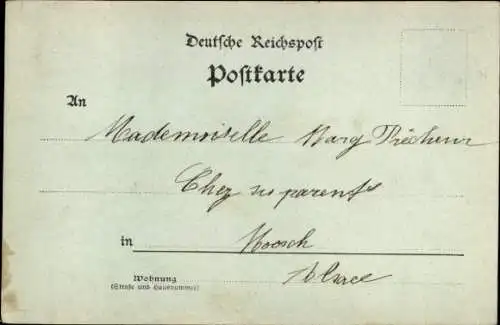 Deutsche Reichspost
Postkarte
An
Mademoiselle Marg
Chez ses parents
in Moosch
Alsace
Wohnung
(Straße und Hausnummer)